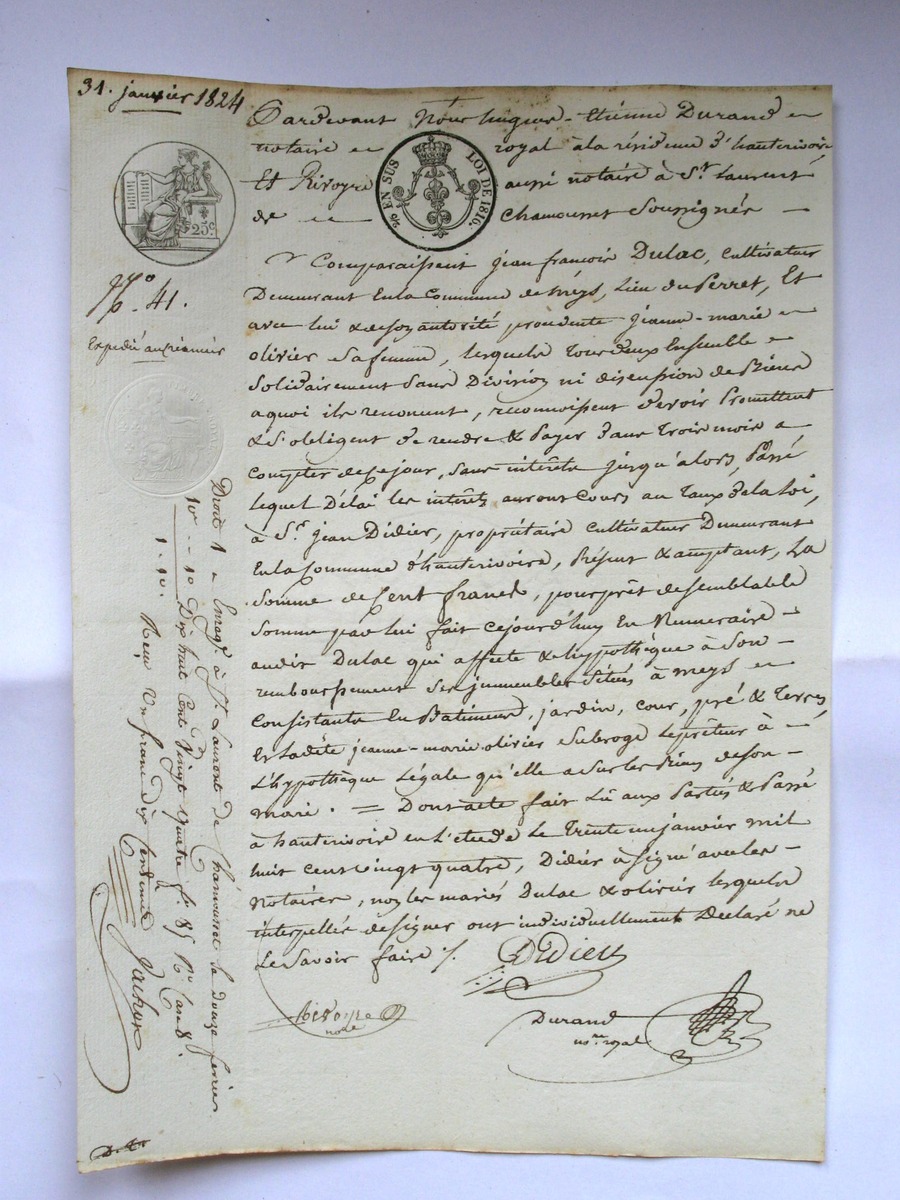 31. janvier 1824
Pardevant Nous hugues-étienne Durand
notaire royal à la résidence d'hauterivoire
Et Rivoyre aussi notaire à St. Laurent
de Chamousset Soussignés
2/10 EN SUS
LOI DE 1816.
25c.
No. 41.
Expédié au créancier
Comparaissent jean françois Dulac, cultivateur
Demeurant En la Commune de Meys, Lieu du Perret, Et
avec lui & de son autorité procedente jeanne-marie
olivier sa femme, lesquels Tous deux Ensemble
Solidairement Sans Division ni discussion de Biens
a quoi ils renoncent, reconnoissent devoir Promettent
& S'obligent de rendre & Payer dans Trois mois a
Compter de ce jour, sans intérêts jusqu'alors, Passé
lequel Délai les intérêts auront Cours au Taux de la Loi,
à Sr. jean Didier, propriétaire cultivateur Demeurant
En la Commune d'hauterivoire, Présent & acceptant, La
Somme de Cent francs, pour prêt de semblable
Somme par lui fait cejourd'huy En Numeraire
audit Dulac qui affecte & hypothèque à Son
remboursement ses immeubles Situés à meys
Consistants En Batiments, jardin, cour, pré & Terres,
Et ladite jeanne-marie olivier Subroge le prêteur à
L'hypothèque Légale qu'elle a Sur les Biens de son
mari. = Dont acte fait Lu aux Parties & Passé
à hauterivoire en L'étude Le Trente un janvier mil
huit cent vingt quatre, Didier à Signé avec les
Notaires, non les mariés Dulac & olivier lesquels
interpellés de signer ont individuellement Déclaré ne
Le Savoir faire /.
Didier
Rivoyre
Durand
nore. royal
Droit 1 Enregé. à St. Laurent de Chamousset le douze fevrier
10e -- 10 Dix huit Cent Vingt quatre fo. 85 Ro. Case 8.
1. 10. Reçu Un franc dix centimes